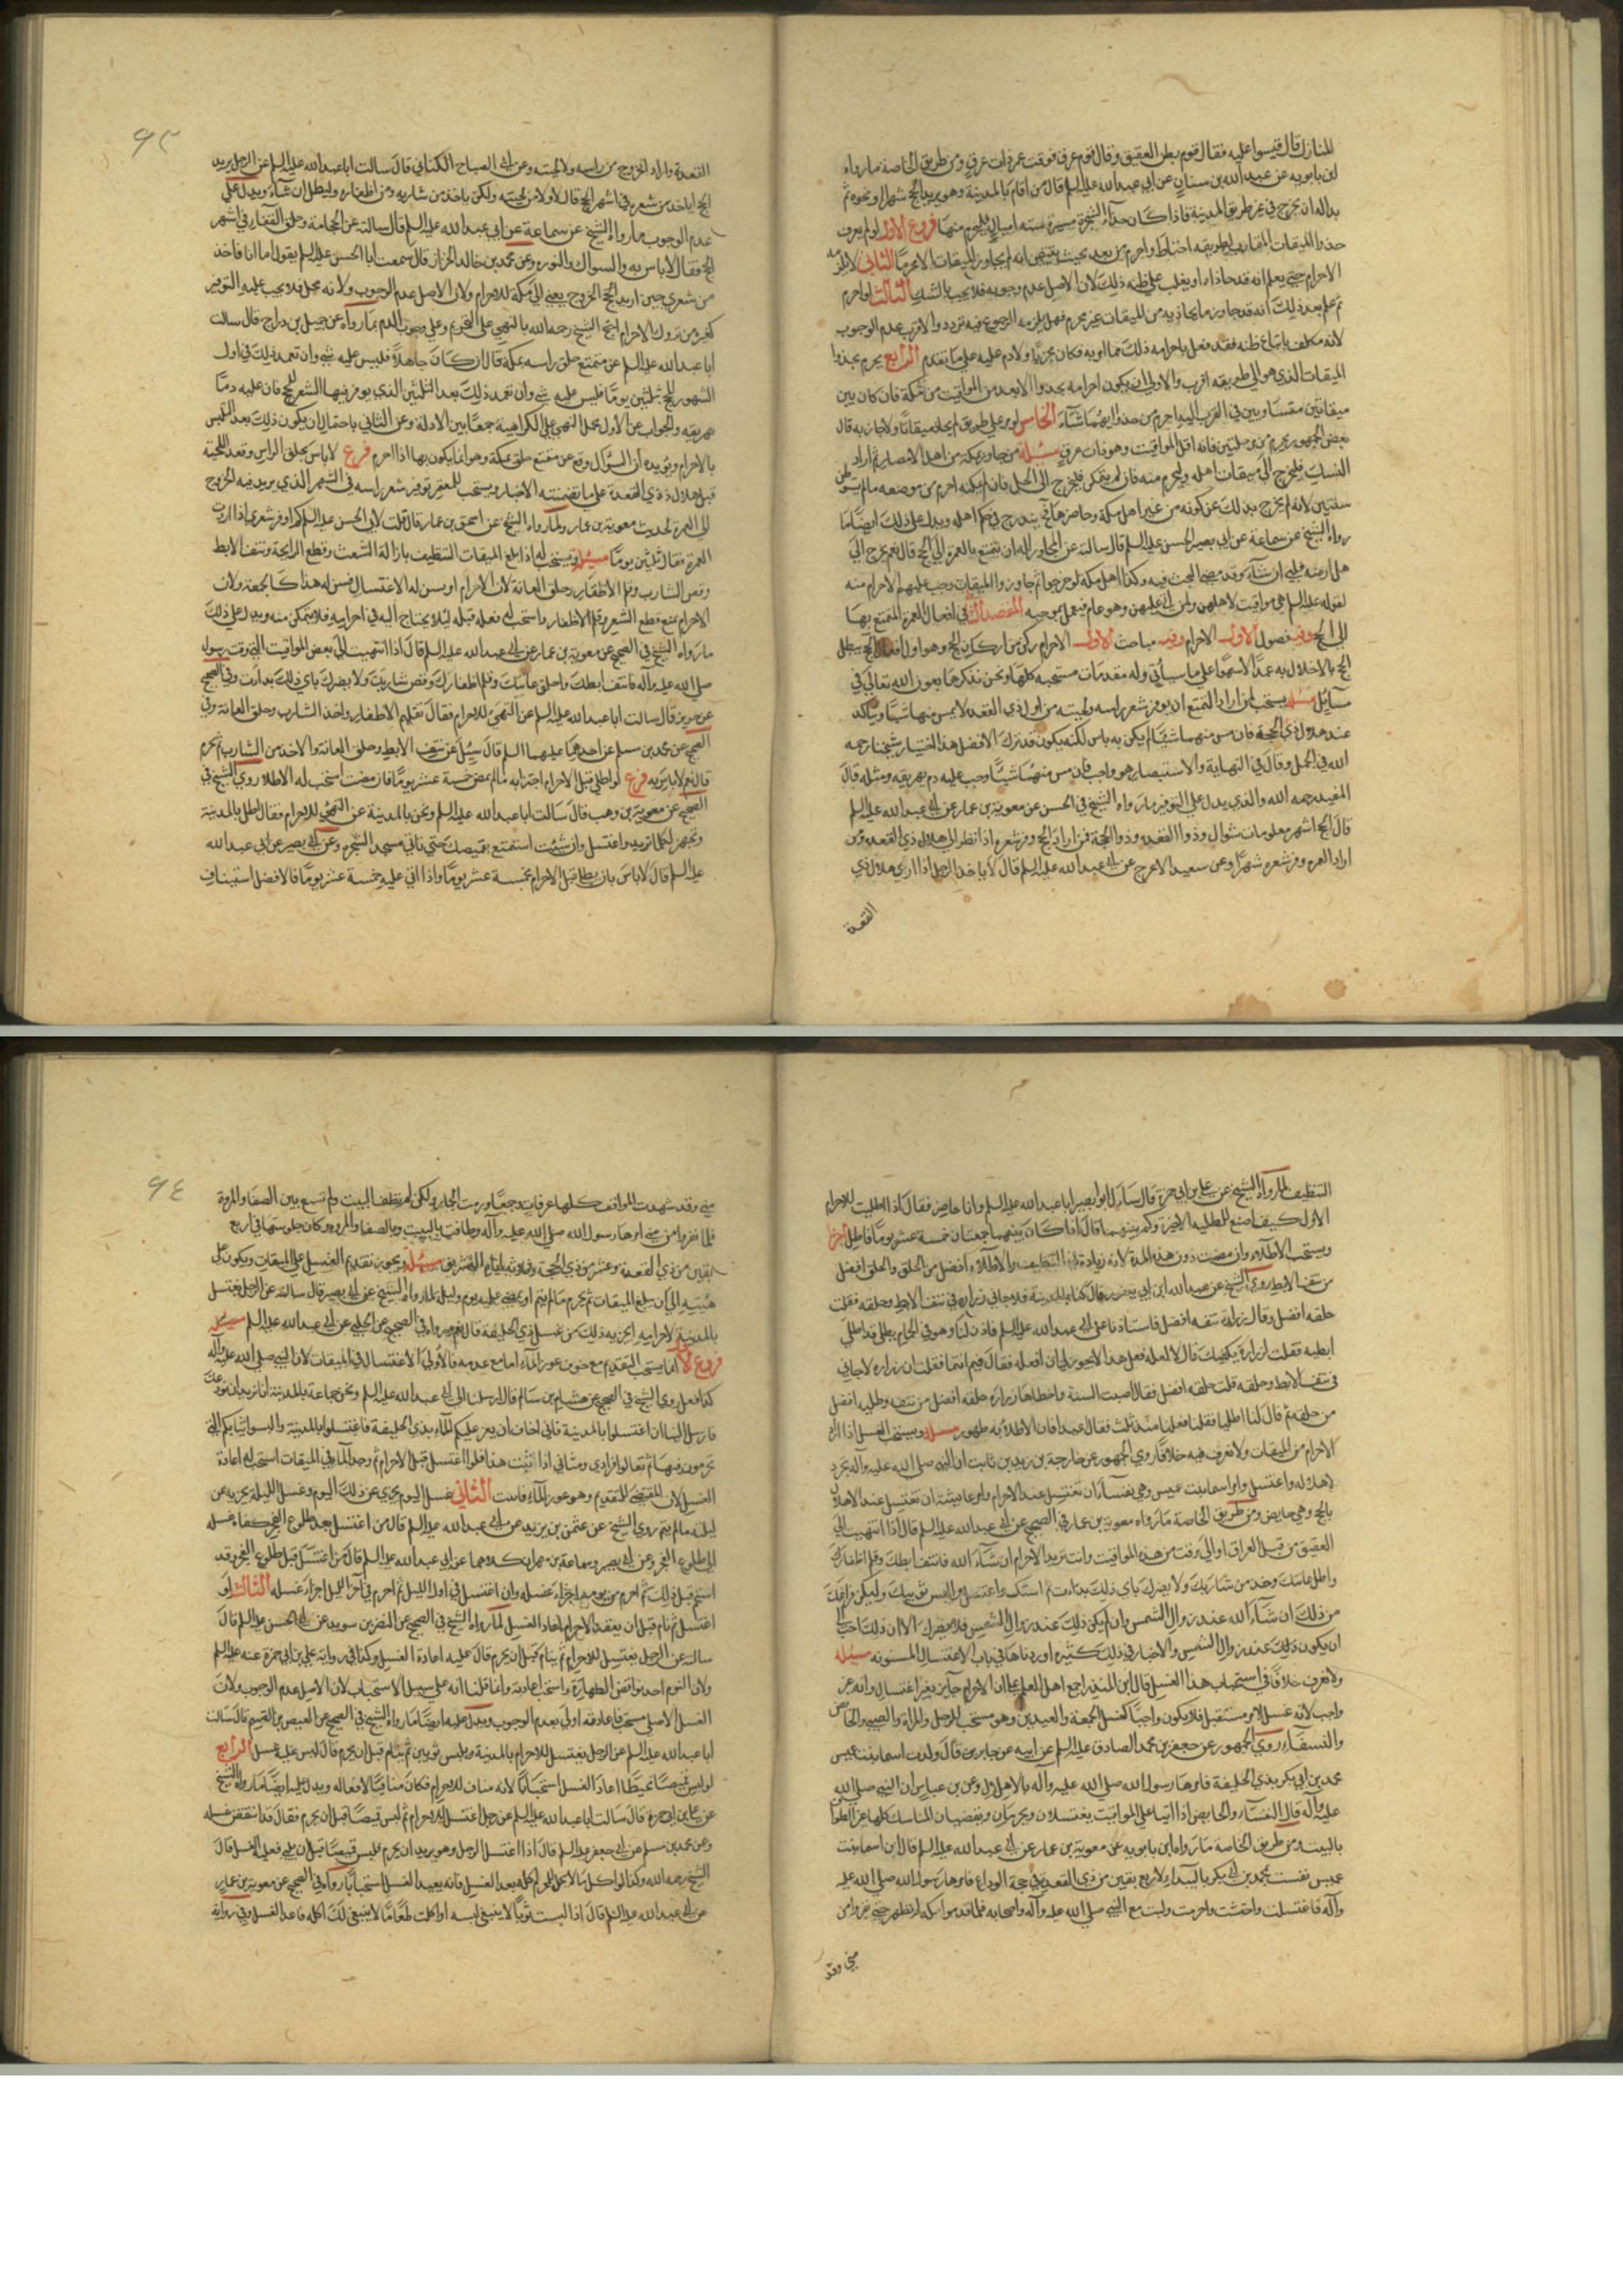 المنازل قال قيسوا عليه فقال قوم بطن العقيق وقال قوم عرق فوقت عمر ذات عرق ومن طريق الخاصة ما رواه
ابن بابويه عن عبد الله بن سنان عن ابي عبد الله عليه السلم قال من اقام بالمدينة وهو يريد الحج شهرا او نحوه ثم
بدا له ان يخرج في غير طريق المدينة فاذا كان حذاء الشجرة مسيرة ستة اميال فليحرم منها فروع الاول لو لم يعرف
حذو الميقات المقارب لطريقه احتاط واحرم من بعد بحيث يتيقن انه لم يجاوز الميقات الا محرما الثاني لا يلزمه
الاحرام حتى يعلم انه قد حاذاه او يغلب على ظنه ذلك لان الاصل عدم وجوبه فلا يجب بالشك الثالث لو احرم
ثم علم بعد ذلك انه قد جاوز ما يحاذيه من الميقات غير محرم فهل يلزمه الرجوع فيه تردد والاقرب عدم الوجوب
لانه مكلف باتباع ظنه فقد فعل باحرامه ذلك مما امر به فكان مجزيا ولا دم عليه على ما تقدم الرابع يحرم بحذو
الميقات الذي هو الى طريقه اقرب والاولى ان يكون احرامه بحذو الابعد من المواقيت من مكة فان كان بين
ميقاتين متساويين في القرب اليه احرم من حذو ايهما شاء الخامس لو مر على طريق لم يحاذ ميقاتا ولا جاز به قال
بعض الجمهور يحرم من مرحلتين فانه اقل المواقيت وهو ذات عرق مسئلة من جاور بمكة من اهل الامصار ثم اراد
النسك فليخرج الى ميقات اهله وليحرم منه فان لم يتمكن فليخرج الى الحل فان لم يمكنه احرم من موضعه ما لم يتوطن
سنتين لانه لم يخرج بذلك عن كونه من غير اهل مكة وحاضرها فيندرج في حكم اهله ويدل على ذلك ايضا ما
رواه الشيخ عن سماعة عن ابي الحسن عليه السلم قال سالته عن المجاور اله ان يتمتع بالعمرة الى الحج قال نعم يخرج الى
مهل ارضه فيلبي ان شاء وقد مضى البحث فيه وكذا اهل مكة لو خرجوا ثم جاوزوا الميقات وجب عليهم الاحرام منه
لقوله عليه السلم هي مواقيت لاهلهن ولمن اتى عليهن وهو عام فيعمل بموجبه المقصد الثالث في افعال العمرة المتمتع بها
الى الحج وفيه فصول الاول الاحرام وفيه مباحث الاول الاحرام ركن من اركان الحج وهو اول افعال الحج يبطل
الحج بالاخلال به عمدا لا سهوا على ما سياتي وله مقدمات مستحبة كلها ونحن نذكرها بعون الله تعالى في
مسائل مسئلة يستحب لمن اراد التمتع ان يوفر شعر راسه ولحيته من اول ذي القعدة لا يمس منهما شيئا ويتاكد
عند هلال ذي الحجة فان مس منهما شيئا لم يكن به باس لكنه يكون قد ترك الافضل هذا اختيار شيخنا رحمه
الله في الجمل وقال في النهاية والاستبصار هو واجب فان مس منهما شيئا وجب عليه دم يهريقه ومثله قال
المفيد رحمه الله والذي يدل على التوفير ما رواه الشيخ في الحسن عن معوية بن عمار عن ابي عبد الله عليه السلم
قال الحج اشهر معلومات شوال وذو القعدة وذو الحجة فمن اراد الحج وفر شعره اذا نظر الى هلال ذي القعدة ومن
اراد العمرة وفر شعره شهرا وعن سعيد الاعرج عن ابي عبد الله عليه السلم قال لا ياخذ الرجل اذا راى هلال ذي
القعدة
٩٣
القعدة واراد الخروج من راسه ولا لحيته وعن ابي الصباح الكناني قال سالت ابا عبد الله عليه السلم عن الرجل يريد
الحج اياخذ من شعره في اشهر الحج قال لا ولا من لحيته ولكن ياخذ من شاربه ومن اظفاره وليطل ان شاء ويدل على
عدم الوجوب ما رواه الشيخ عن سماعة عن ابي عبد الله عليه السلم قال سالته عن الحجامة وحلق القفا في اشهر
الحج فقال لا باس به والسواك والنورة وعن محمد بن خالد الخزاز قال سمعت ابا الحسن عليه السلم يقول اما انا فاخذ
من شعري حين اريد الخروج يعني الى مكة للاحرام ولان الاصل عدم الوجوب ولانه محل فلا يجب عليه التوفير
كغيره من تروك الاحرام احتج الشيخ رحمه الله بالنهي على التحريم وعلى وجوب الدم بما رواه عن جميل بن دراج قال سالت
ابا عبد الله عليه السلم عن متمتع حلق راسه بمكة قال ان كان جاهلا فليس عليه شي وان تعمد ذلك في اول
الشهور للحج بثلثين يوما فليس عليه شي وان تعمد ذلك بعد الثلثين الذي يوفر فيها الشعر للحج فان عليه دما
يهريقه والجواب عن الاول بحمل النهي على الكراهية جمعا بين الادلة وعن الثاني باحتمال ان يكون ذلك بعد التلبس
بالاحرام ويؤيده ان السؤال وقع عن متمتع حلق بمكة وهو انما يكون بها اذا احرم فرع لا باس بحلق الراس وقص اللحية
قبل هلال ذي القعدة على ما تضمنته الاخبار ويستحب للمعتمر توفير شعر راسه في الشهر الذي يريد فيه الخروج
الى العمرة لحديث معوية بن عمار ولما رواه الشيخ عن اسحق بن عمار قال قلت لابي الحسن عليه السلم كم اوفر شعري اذا اردت
العمرة فقال ثلثين يوما مسئلة ويستحب له اذا بلغ الميقات التنظيف بازالة الشعث وقطع الرايحة ونتف الابط
وقص الشارب وقلم الاظفار وحلق العانة لان الاحرام امر يسن له الاغتسال فسن له هذا كالجمعة ولان
الاحرام يمنع قطع الشعر وقلم الاظفار واستحب له فعله قبله لئلا يحتاج اليه في احرامه فلا يتمكن منه ويدل على ذلك
ما رواه الشيخ في الصحيح عن معوية بن عمار عن ابي عبد الله عليه السلم قال اذا انتهيت الى بعض المواقيت التي وقت رسول
صلى الله عليه وآله فانتف ابطك واحلق عانتك وقلم اظفارك وقص شاربك ولا يضرك باي ذلك بدات وفي الصحيح
عن حريز قال سالت ابا عبد الله عليه السلم عن التهيؤ للاحرام فقال تقليم الاظفار واخذ الشارب وحلق العانة وفي
الصحيح عن محمد بن مسلم عن احدهما عليهما السلم قال سئل عن نتف الابط وحلق العانة والاخذ من الشارب ثم يحرم
قال نعم لا باس به فرع لو اطلى قبل الاحرام اجتزا به ما لم يمض خمسة عشر يوما فان مضت استحب له الاطلا روى الشيخ في
الصحيح عن معوية بن وهب قال سالت ابا عبد الله عليه السلم ونحن بالمدينة عن التهيؤ للاحرام فقال اطل بالمدينة
وتجهز بكل ما تريد واغتسل وان شئت استمتع بقميصك حتى تاتي مسجد الشجرة وعن ابي بصير عن ابي عبد الله
عليه السلم قال لا باس بان يطلي قبل الاحرام بخمسة عشر يوما واذا اتى عليه خمسة عشر يوما فالافضل استيناف
التنظيف لما رواه الشيخ عن علي بن ابي حمزة قال سال ابو بصير ابا عبد الله عليه السلم وانا حاضر فقال اذا اطليت للاحرام
الاول كيف اصنع للطلية الاخيرة وكم بينهما قال اذا كان بينهما جمعتان خمسة عشر يوما فاطل
ويستحب الاطلاء وان مضت دون هذه المدة لانه زيادة في التنظيف والاطلاء افضل من الحلق والحلق افضل
من نتف الابط روى الشيخ عن عبد الله بن ابي يعفور قال كنا بالمدينة فلاحاني زرارة في نتف الابط وحلقه فقلت
حلقه افضل وقال زرارة نتفه افضل فاستاذنا على ابي عبد الله عليه السلم فاذن لنا وهو في الحمام يطلي قد اطلى
ابطيه فقلت لزرارة يكفيك قال لا لعله فعل هذا لما لا يجوز لي ان افعله فقال فيم انتما فقلت ان زرارة لاحاني
في نتف الابط وحلقه قلت حلقه افضل فقال اصبت السنة واخطاها زرارة حلقه افضل من نتفه وطليه افضل
من حلقه ثم قال لنا اطليا فقلنا فعلنا منذ ثلث فقال اعيدا فان الاطلاء طهور مسئلة ويستحب الغسل اذا اراد
الاحرام من الميقات ولا نعرف فيه خلافا روى الجمهور عن خارجة بن زيد بن ثابت ان النبي صلى الله عليه وآله تجرد
لاهلاله واغتسل وامر اسما بنت عميس وهي نفساء ان تغتسل عند الاحرام وامر عايشة ان تغتسل عند الاهلال
بالحج وهي حايض ومن طريق الخاصة ما رواه معوية بن عمار في الصحيح عن ابي عبد الله عليه السلم قال اذا انتهيت الى
العقيق من قبل العراق او الى وقت من هذه المواقيت وانت تريد الاحرام ان شاء الله فانتف ابطك وقلم اظفارك
واطل عانتك وخذ من شاربك ولا يضرك باي ذلك بدات ثم استك واغتسل والبس ثوبيك وليكن فراغك
من ذلك ان شاء الله عند زوال الشمس وان لم يكن ذلك عند زوال الشمس فلا يضرك الا ان ذلك احب الي
ان يكون ذلك عند زوال الشمس والاخبار في ذلك كثيرة اوردناها في باب الاغتسال المسنونة مسئلة
ولا نعرف خلافا في استحباب هذا الغسل قال ابن المنذر اجمع اهل العلم على ان الاحرام جايز بغير اغتسال وانه غير
واجب لانه غسل لامر مستقبل فلا يكون واجبا كغسل الجمعة والعيدين وهو مستحب للرجل والمراة والصبي والحايض
والنفساء روى الجمهور عن جعفر بن محمد الصادق عليه السلم عن ابيه عن جابر قال ولدت اسما بنت عميس
محمد بن ابي بكر بذي الحليفة فامرها رسول الله صلى الله عليه وآله بالاهلال وعن ابن عباس ان النبي صلى الله
عليه وآله قال النفساء والحايض اذا اتيا على المواقيت يغتسلان ويحرمان ويقضيان المناسك كلها غير الطواف
بالبيت ومن طريق الخاصة ما رواه ابن بابويه عن معوية بن عمار عن ابي عبد الله عليه السلم قال ان اسما بنت
عميس نفست بمحمد بن ابي بكر بالبيداء لاربع بقين من ذي القعدة في حجة الوداع فامرها رسول الله صلى الله عليه
وآله فاغتسلت واحتشت واحرمت ولبت مع النبي صلى الله عليه وآله واصحابه فلما قدموا مكة لم تطهر حتى نفروا من
منى وقد
٩٤
منى وقد شهدت المواقف كلها عرفات وجمعا ورمت الجمار ولكن لم تطف بالبيت ولم تسع بين الصفا والمروة
فلما نفروا من منى امرها رسول الله صلى الله عليه وآله وطافت بالبيت وبالصفا والمروة وكان جلوسها في اربع
بقين من ذي القعدة وعشر من ذي الحجة وثلثة ايام التشريق مسئلة ويجوز تقديم الغسل على الميقات ويكون على
هيئته الى ان يبلغ الميقات ثم يحرم ما لم ينم او يمضي عليه يوم وليلة لما رواه الشيخ عن ابي بصير قال سالته عن الرجل يغتسل
بالمدينة لاحرامه ايجزيه ذلك من غسل ذي الحليفة قال نعم ورواه في الصحيح عن الحلبي عن ابي عبد الله عليه السلم مسئلة
فروع انما يستحب التقديم مع خوف عوز الماء اما مع عدمه فالاولى الاغتسال في الميقات لان النبي صلى الله عليه وآله
كذا فعل روى الشيخ في الصحيح عن هشام بن سالم قال ارسلنا الى ابي عبد الله عليه السلم ونحن جماعة بالمدينة انا نريد ان نودعك
فارسل الينا ان اغتسلوا بالمدينة فاني اخاف ان يعز عليكم الماء بذي الحليفة فاغتسلوا بالمدينة والبسوا ثيابكم التي
تحرمون فيها ثم تعالوا فرادى ومثاني اذا ثبت هذا فلو اغتسل قبل الاحرام ثم وجد الماء في الميقات استحب له اعادة
الغسل لان المقتضي للتقديم وهو عوز الماء فايت الثاني غسل اليوم يجزي عن ذلك اليوم وغسل الليلة يجزيه عن
ليلته ما لم ينم روى الشيخ عن عثمن بن يزيد عن ابي عبد الله عليه السلم قال من اغتسل بعد طلوع الفجر كفاه غسله
الى طلوع الفجر وعن ابي بصير وسماعة بن مهران كلاهما عن ابي عبد الله عليه السلم قال من اغتسل قبل طلوع الفجر وقد
استحم قبل ذلك ثم احرم من يومه اجزاه غسله وان اغتسل في اول الليل ثم احرم في آخر الليل اجزاه غسله الثالث لو
اغتسل ثم نام قبل ان يعقد الاحرام اعاد الغسل لما رواه الشيخ في الصحيح عن النضر بن سويد عن ابي الحسن عليه السلم قال
سالته عن الرجل يغتسل للاحرام ثم ينام قبل ان يحرم قال عليه اعادة الغسل وكذا في رواية علي بن ابي حمزة عنه عليه السلم
ولان النوم احد نواقض الطهارة واستحب اعادته وانما قلنا انه على سبيل الاستحباب لان الاصل عدم الوجوب ولان
الغسل الاصلي مستحب فاعادته اولى بعدم الوجوب ويدل عليه ايضا ما رواه الشيخ في الصحيح عن العيص بن القسم قال سالت
ابا عبد الله عليه السلم عن الرجل يغتسل للاحرام بالمدينة ويلبس ثوبين ثم ينام قبل ان يحرم قال ليس عليه غسل الرابع
لو لبس قميصا مخيطا اعاد الغسل استحبابا لانه مناف للاحرام فكان منافيا لافعاله ويدل عليه ايضا ما رواه الشيخ
عن علي بن ابي حمزة قال سالت ابا عبد الله عليه السلم عن رجل اغتسل للاحرام ثم لبس قميصا قبل ان يحرم فقال قد انتقض غسله
وعن محمد بن مسلم عن ابي جعفر عليه السلم قال اذا اغتسل الرجل وهو يريد ان يحرم فلبس قميصا قبل ان يلبي فعليه الغسل قال
الشيخ رحمه الله وكذا لو اكل ما لا يحل للمحرم اكله بعد الغسل فانه يعيد الغسل استحبابا رواه في الصحيح عن معوية بن عمار
عن ابي عبد الله عليه السلم قال اذا لبست ثوبا لا ينبغي لبسه او اكلت طعاما لا ينبغي لك اكله فاعد الغسل وفي رواية